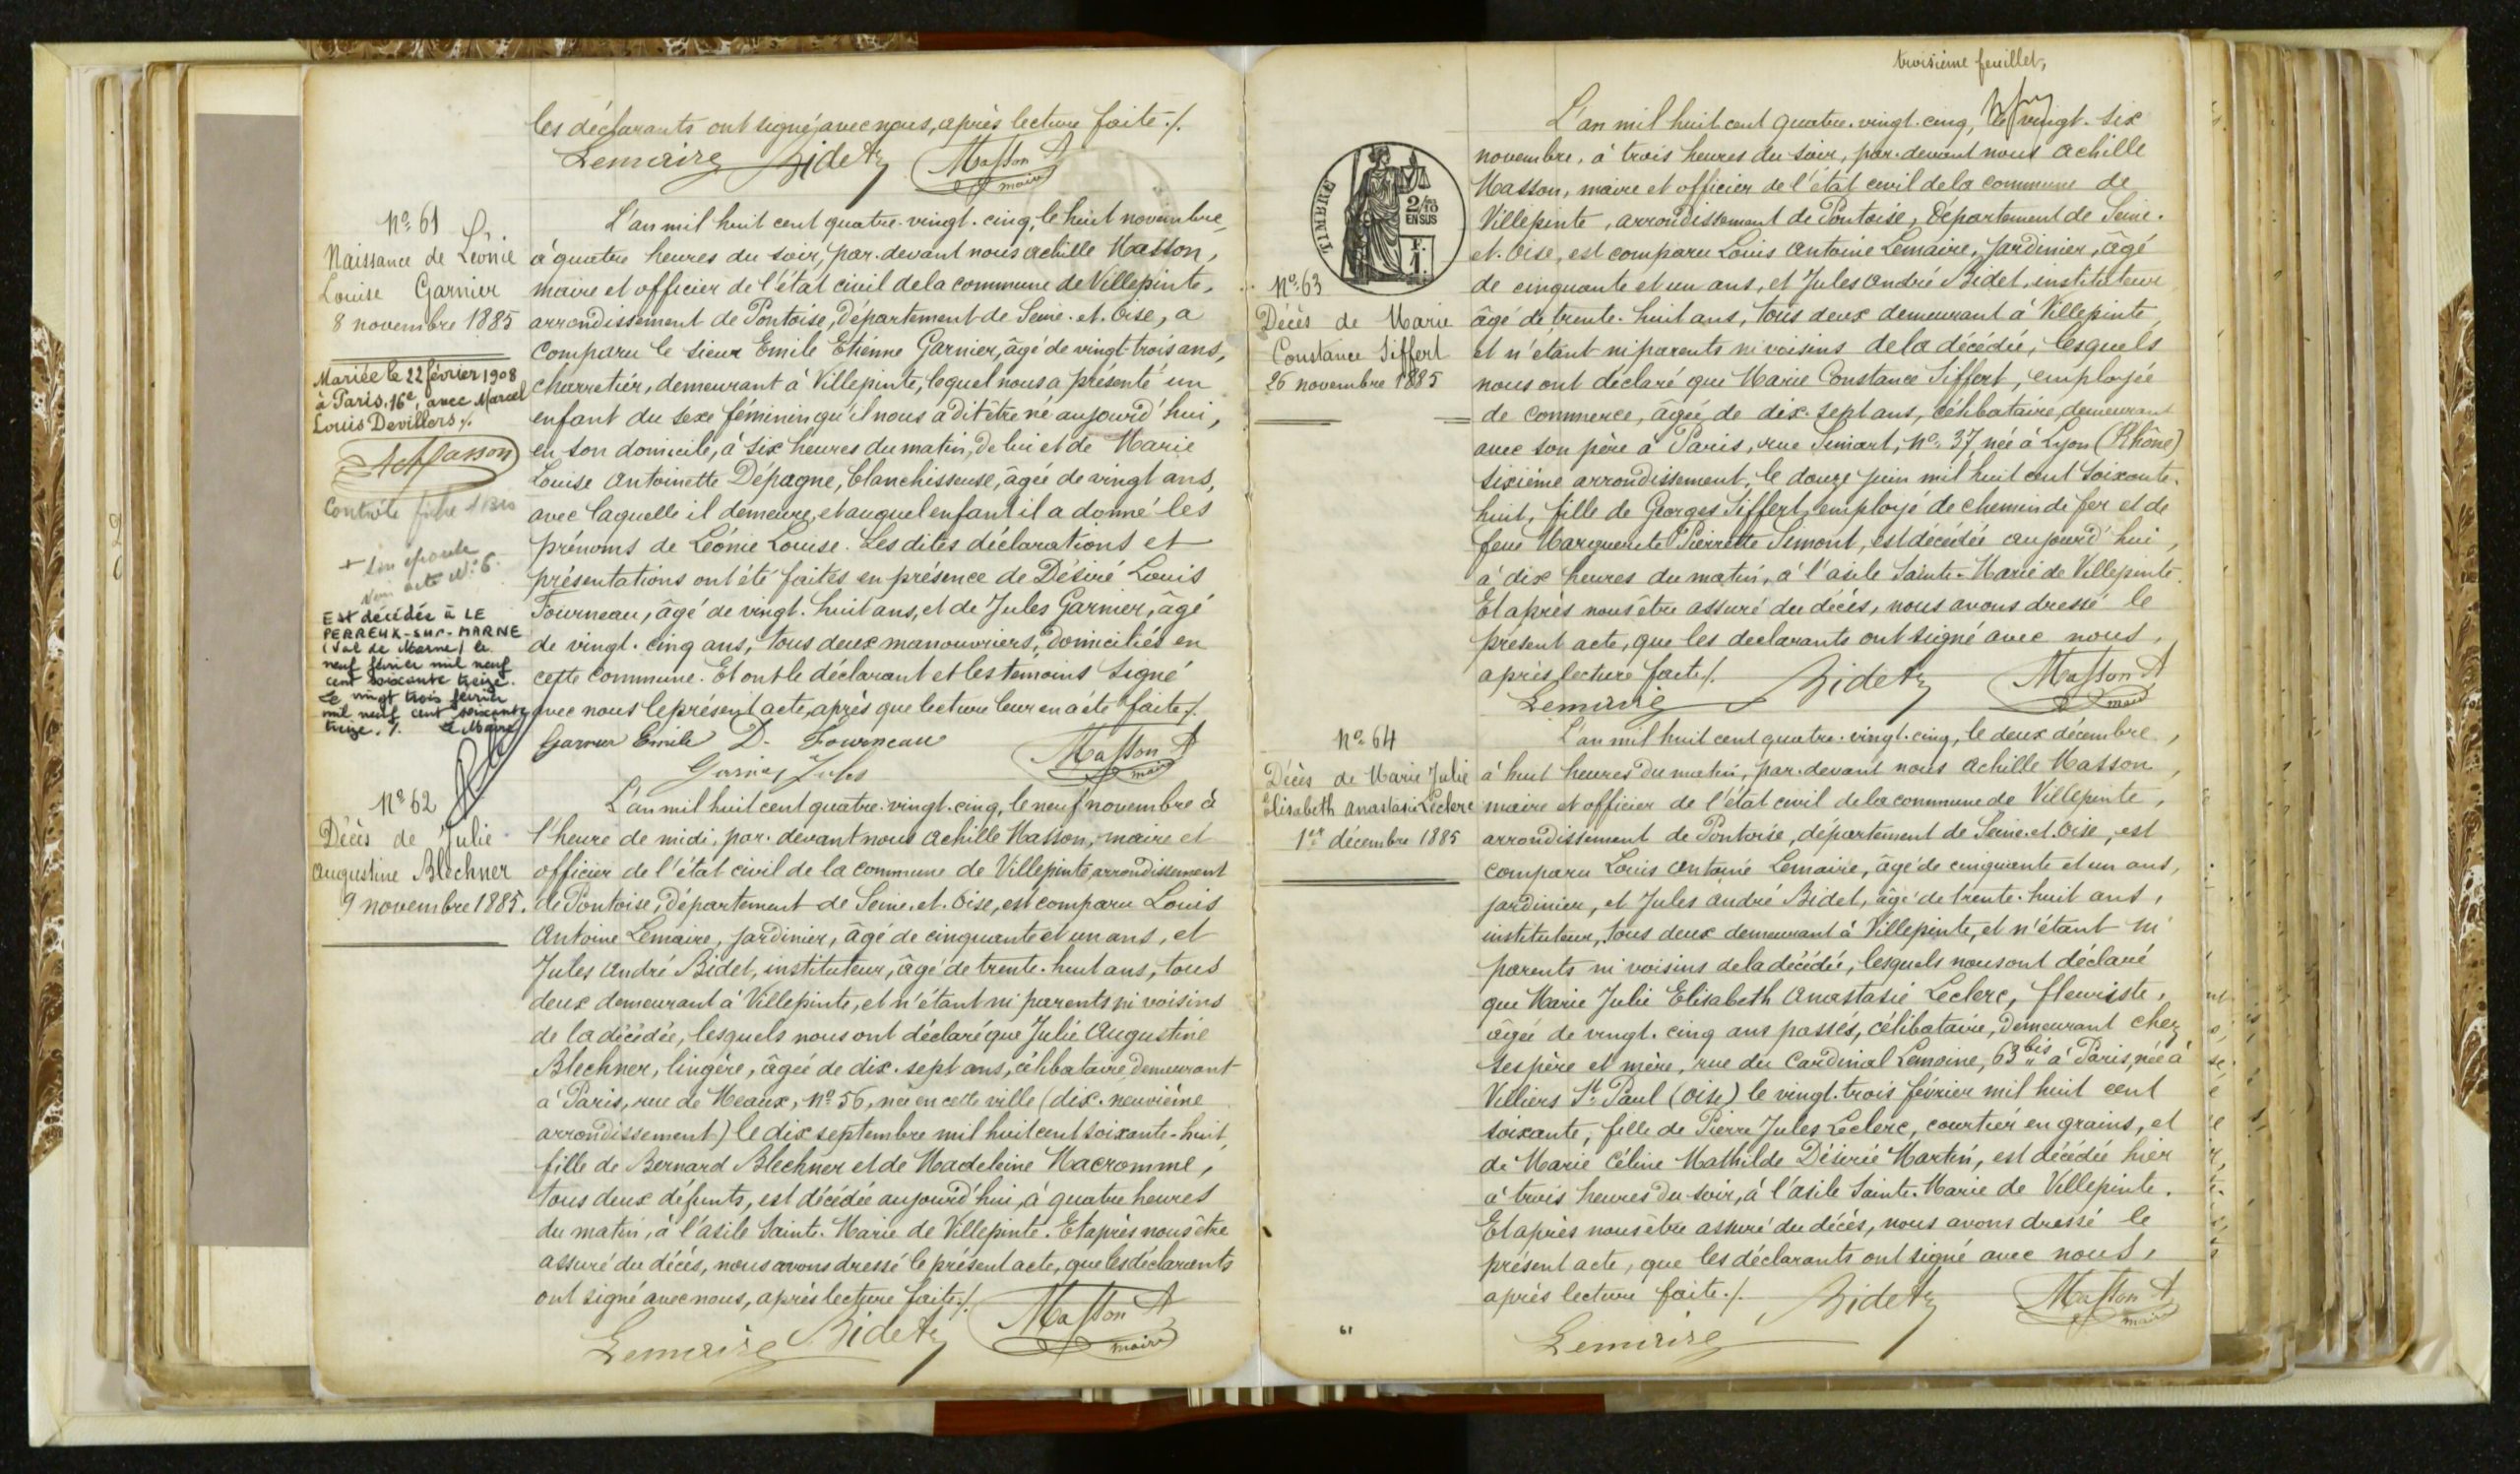 les déclarants ont signé avec nous, après lecture faite ./.
Lemaire Bidet Masson A
maire
N° 61
Naissance de Léonie
Louise Garnier
8 novembre 1885
Mariée le 22 février 1908
à Paris, 16e, avec Marcel
Louis Devillers ./.
Masson
Contrôle
acte N° 6.
Est décédée à LE
PERREUX-SUR-MARNE
(Val de Marne) le
neuf février mil neuf
cent soixante treize.
Le vingt trois février
mil neuf cent soixante
treize ./. Le Maire
L'an mil huit cent quatre-vingt-cinq, le huit novembre,
à quatre heures du soir, par-devant nous Achille Masson,
maire et officier de l'état civil de la commune de Villepinte,
arrondissement de Pontoise, Département de Seine-et-Oise, a
comparu le sieur Emile Etienne Garnier, âgé de vingt-trois ans,
charretier, demeurant à Villepinte, lequel nous a présenté un
enfant du sexe féminin qu'il nous a dit être né aujourd'hui,
en son domicile, à six heures du matin, de lui et de Marie
Louise Antoinette Dépagne, blanchisseuse, âgée de vingt ans,
avec laquelle il demeure, et auquel enfant il a donné les
prénoms de Léonie Louise. Lesdites déclarations et
présentations ont été faites en présence de Désiré Louis
Fourneau, âgé de vingt-huit ans, et de Jules Garnier, âgé
de vingt-cinq ans, tous deux manouvriers, domiciliés en
cette commune. Et ont le déclarant et les témoins signé
avec nous le présent acte, après que lecture leur en a été faite ./.
Garnier Emile D. Fourneau Masson A
Garnier Jules maire
N° 62
Décès de Julie
Augustine Blechner
9 novembre 1885.
L'an mil huit cent quatre-vingt-cinq, le neuf novembre à
l'heure de midi, par-devant nous Achille Masson, maire et
officier de l'état civil de la commune de Villepinte, arrondissement
de Pontoise, Département de Seine-et-Oise, est comparu Louis
Antoine Lemaire, jardinier, âgé de cinquante et un ans, et
Jules André Bidet, instituteur, âgé de trente-huit ans, tous
deux demeurant à Villepinte, et n'étant ni parents ni voisins
de la décédée, lesquels nous ont déclaré que Julie Augustine
Blechner, lingère, âgée de dix-sept ans, célibataire, demeurant
à Paris, rue de Meaux, N° 56, née en cette ville (dix-neuvième
arrondissement) le dix septembre mil huit cent soixante-huit,
fille de Bernard Blechner et de Madeleine Macromme,
tous deux défunts, est décédée aujourd'hui, à quatre heures
du matin, à l'asile Sainte-Marie de Villepinte. Et après nous être
assuré du décès, nous avons dressé le présent acte, que les déclarants
ont signé avec nous, après lecture faite ./.
Lemaire Bidet Masson A
maire
troisième feuillet,
TIMBRE
2/10
EN SUS
F.
1.
N° 63
Décès de Marie
Constance Siffert
26 novembre 1885
L'an mil huit cent quatre-vingt-cinq, le vingt-six
novembre, à trois heures du soir, par-devant nous Achille
Masson, maire et officier de l'état civil de la commune de
Villepinte, arrondissement de Pontoise, Département de Seine-
et-Oise, est comparu Louis Antoine Lemaire, jardinier, âgé
de cinquante et un ans, et Jules André Bidet, instituteur
âgé de trente-huit ans, tous deux demeurant à Villepinte,
et n'étant ni parents ni voisins de la décédée, lesquels
nous ont déclaré que Marie Constance Siffert, employée
de commerce, âgée de dix-sept ans, célibataire, demeurant
avec son père à Paris, rue Simart, N° 37, née à Lyon (Rhône)
sixième arrondissement, le douze juin mil huit cent soixante-
huit, fille de Georges Siffert, employé de chemin de fer et de
feue Marguerite Pierrette Simont, est décédée aujourd'hui,
à dix heures du matin, à l'asile Sainte-Marie de Villepinte.
Et après nous être assuré du décès, nous avons dressé le
présent acte, que les déclarants ont signé avec nous,
après lecture faite ./.
Lemaire Bidet Masson A
maire
N° 64
Décès de Marie Julie
Elisabeth Anastasie Leclerc
1er décembre 1885
L'an mil huit cent quatre-vingt-cinq, le deux décembre,
à huit heures du matin, par-devant nous Achille Masson,
maire et officier de l'état civil de la commune de Villepinte,
arrondissement de Pontoise, département de Seine-et-Oise, est
comparu Louis Antoine Lemaire, âgé de cinquante et un ans,
jardinier, et Jules André Bidet, âgé de trente-huit ans,
instituteur, tous deux demeurant à Villepinte, et n'étant ni
parents ni voisins de la décédée, lesquels nous ont déclaré
que Marie Julie Elisabeth Anastasie Leclerc, fleuriste,
âgée de vingt-cinq ans passés, célibataire, demeurant chez
ses père et mère, rue du Cardinal Lemoine, 63 bis à Paris, née à
Villiers St Paul (Oise) le vingt-trois février mil huit cent
soixante, fille de Pierre Jules Leclerc, courtier en grains, et
de Marie Céline Mathilde Désirée Martin, est décédée hier
à trois heures du soir, à l'asile Sainte-Marie de Villepinte.
Et après nous être assuré du décès, nous avons dressé le
présent acte, que les déclarants ont signé avec nous,
après lecture faite ./.
Lemaire Bidet Masson A
maire